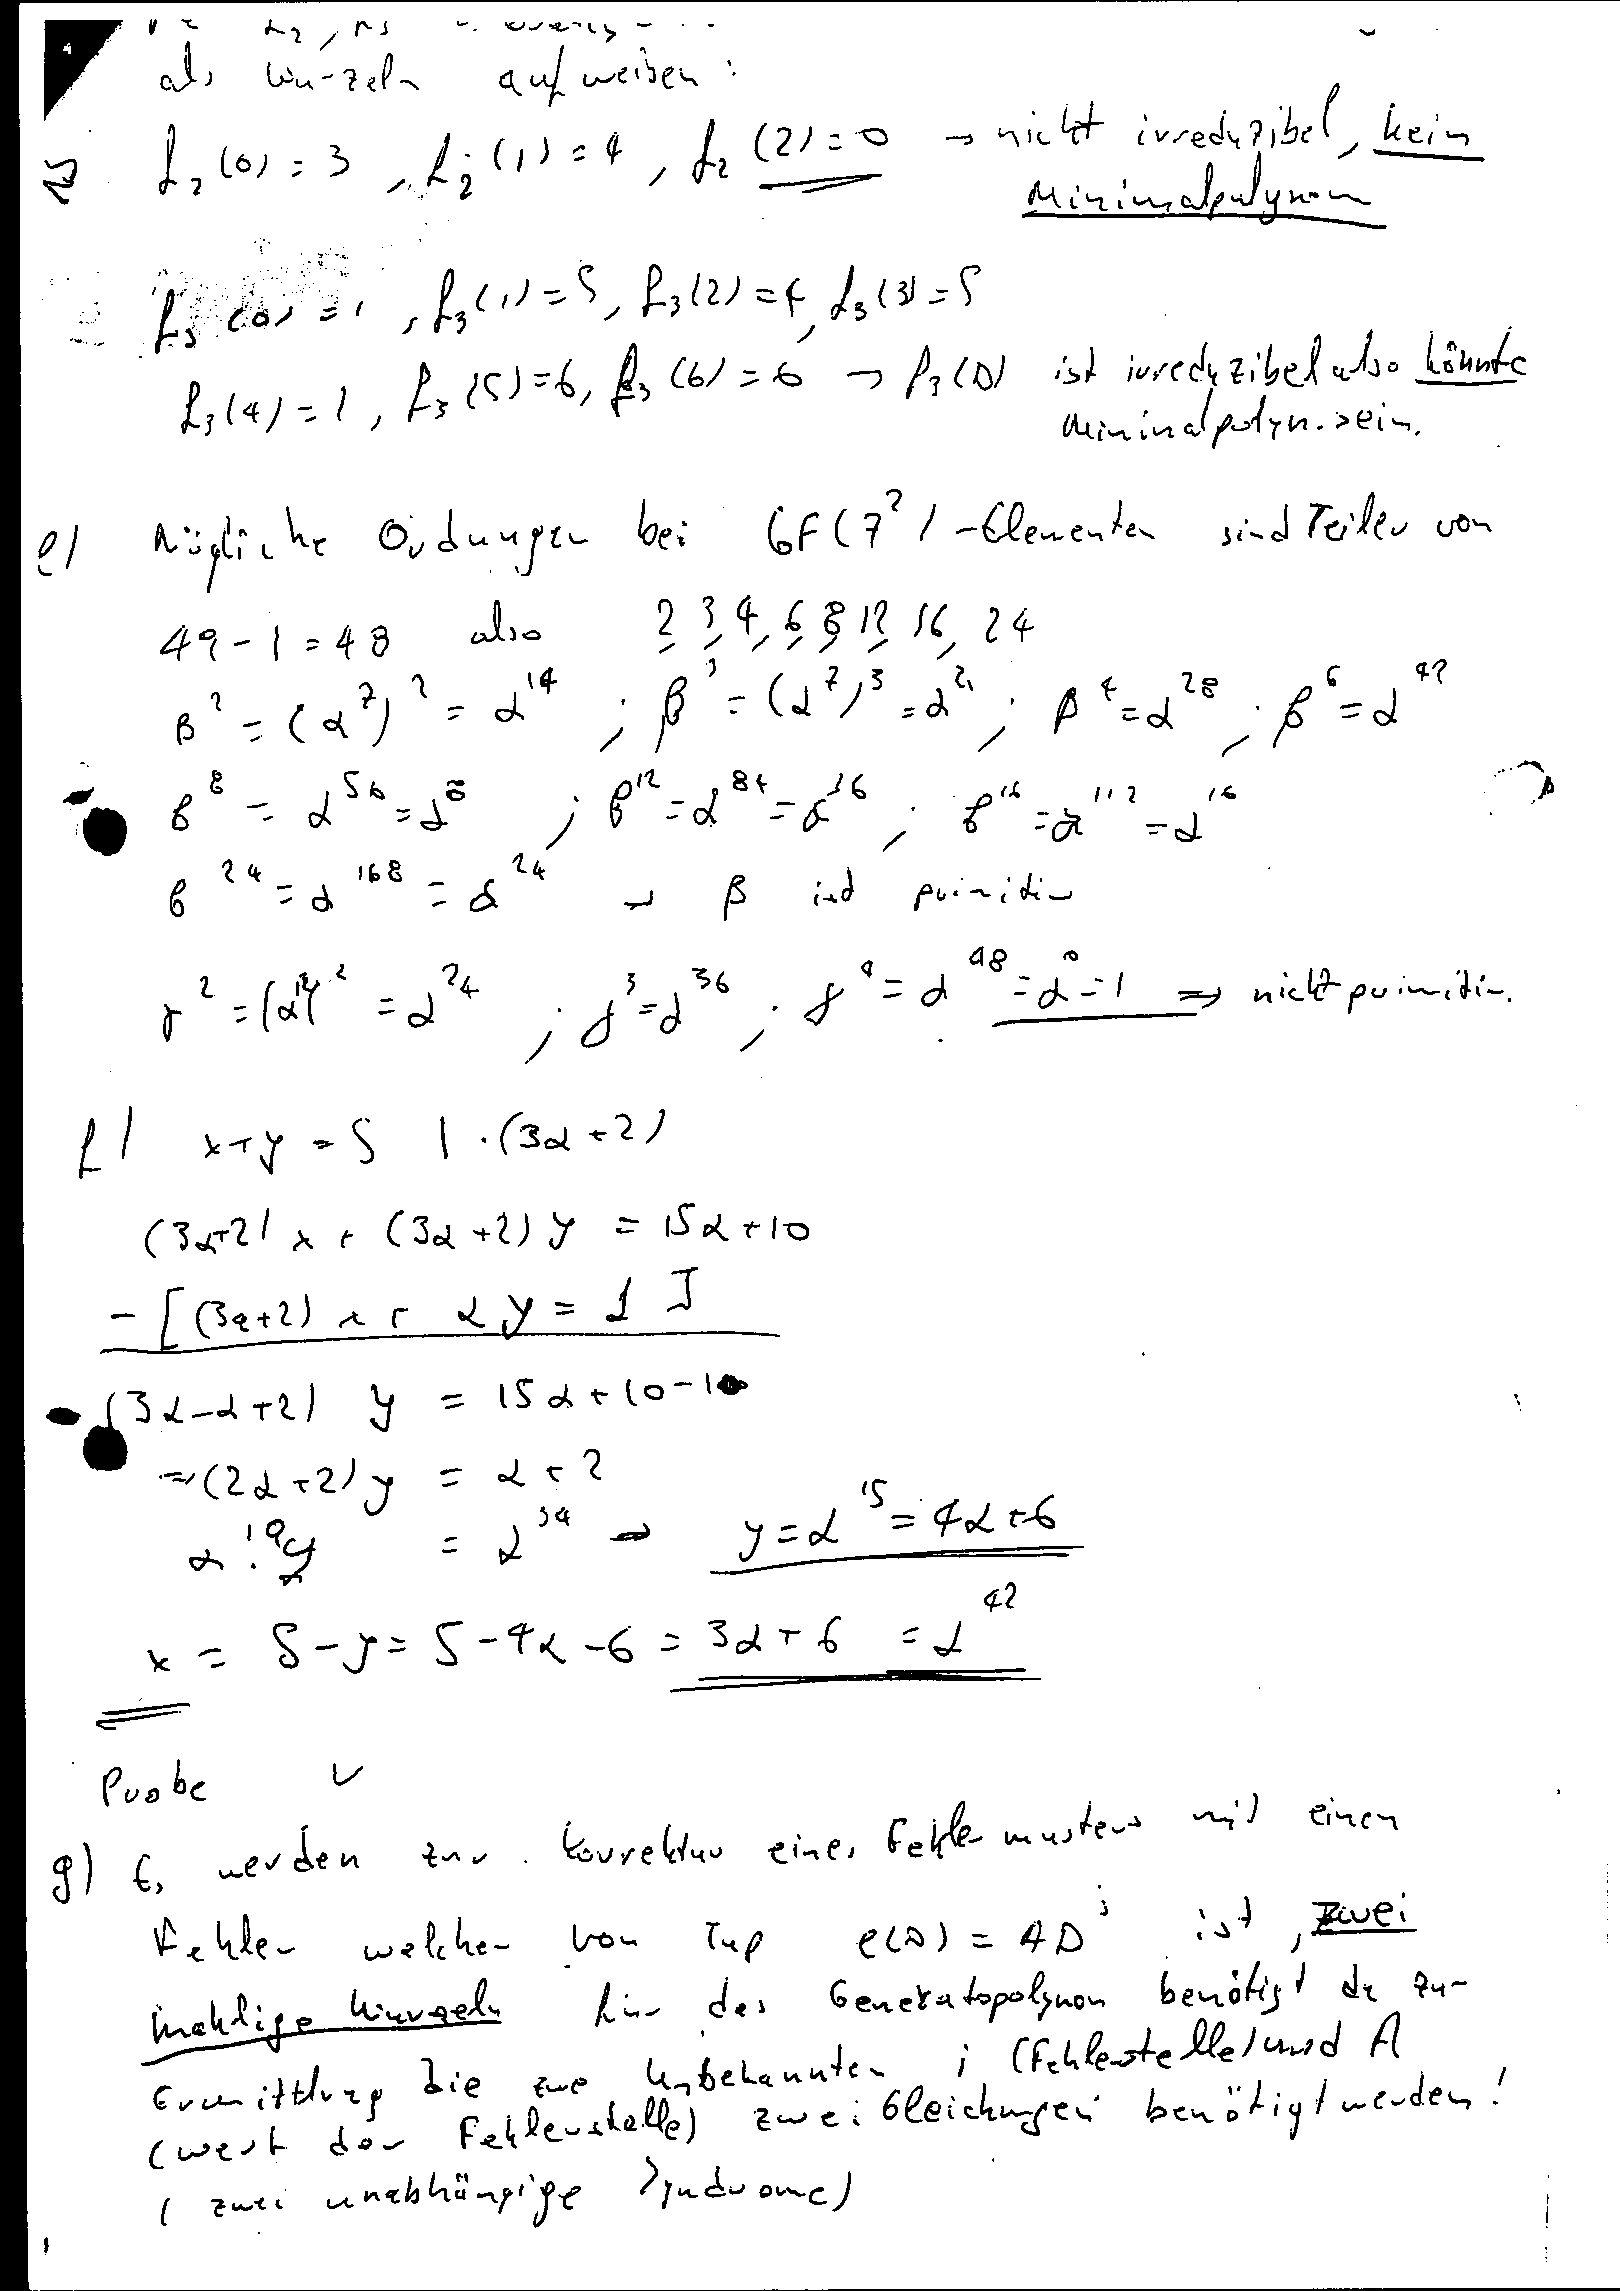 als Wurzeln aufweisen:
f₂(0) = 3, f₂(1) = 4, f₂(2) = 0 → nicht irreduzibel, kein
Minimalpolynom
f₃(0) = 1, f₃(1) = 5, f₃(2) = 4, f₃(3) = 5
f₃(4) = 1, f₃(5) = 6, f₃(6) = 6 → f₃(D) ist irreduzibel also könnte
Minimalpolyn. sein.
e) Mögliche Ordnungen bei GF(7²)-Elementen sind Teiler von
49 - 1 = 48 also 2, 3, 4, 6, 8, 12, 16, 24
β² = (α⁷)² = α¹⁴ ; β³ = (α⁷)³ = α²¹ ; β⁴ = α²⁸ ; β⁶ = α⁴²
β⁸ = α⁵⁶ = α⁸ ; β¹² = α⁸⁴ = α³⁶ ; β¹⁶ = α¹¹² = α¹⁶
β²⁴ = α¹⁶⁸ = α²⁴ → β ist primitiv
γ² = (α¹²)² = α²⁴ ; γ³ = α³⁶ ; γ⁴ = α⁴⁸ = α⁰ = 1 ⇒ nicht primitiv.
f) x + y = 5 | · (3α + 2)
(3α+2) x + (3α+2) y = 15α + 10
- [(3α+2) x + α y = 1]
(3α - α + 2) y = 15α + 10 - 1
⇒ (2α + 2) y = α + 2
y = α³⁴ → y = α¹⁵ = 4α + 6
x = 5 - y = 5 - 4α - 6 = 3α + 6 = α⁴²
Probe ✓
g) Es werden zur Korrektur eines Fehlermusters mit einen
Fehler welcher vom Typ e(D) = A Dⁱ ist, zwei
Wurzeln für das Generatorpolynom benötigt da zur
Ermittlung die zwei Unbekannten i (Fehlerstelle) und A
(Wert der Fehlerstelle) zwei Gleichungen benötigt werden!
(zwei unabhängige Syndrome)